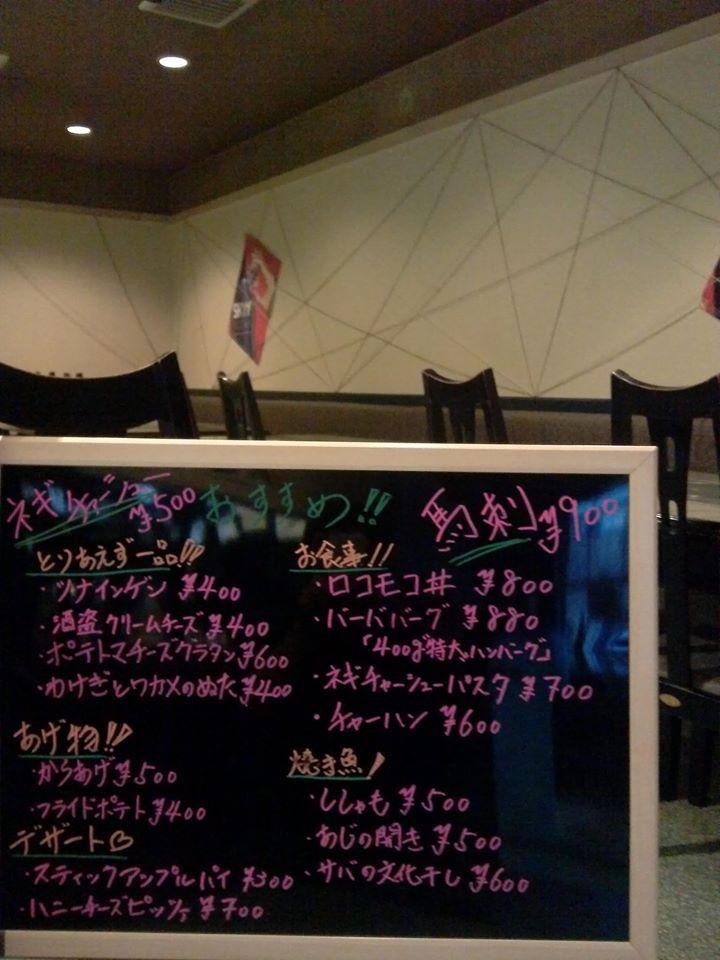 ネギチャーシュー ¥500 おすすめ!! 馬刺 ¥900
とりあえず一品!!
・ツナインゲン ¥400
・酒盗クリームチーズ ¥400
・ポテトマチーズグラタン ¥600
・わけぎとワカメのぬた ¥400
あげ物!!
・からあげ ¥500
・フライドポテト ¥400
デザート♡
・スティックアップルパイ ¥300
・ハニーチーズピッツァ ¥700
お食事!!
・ロコモコ丼 ¥800
・バードバーグ ¥880
「400g特大ハンバーグ」
・ネギチャーシューパスタ ¥700
・チャーハン ¥600
焼き魚!
・ししゃも ¥500
・あじの開き ¥500
・サバの文化干し ¥600